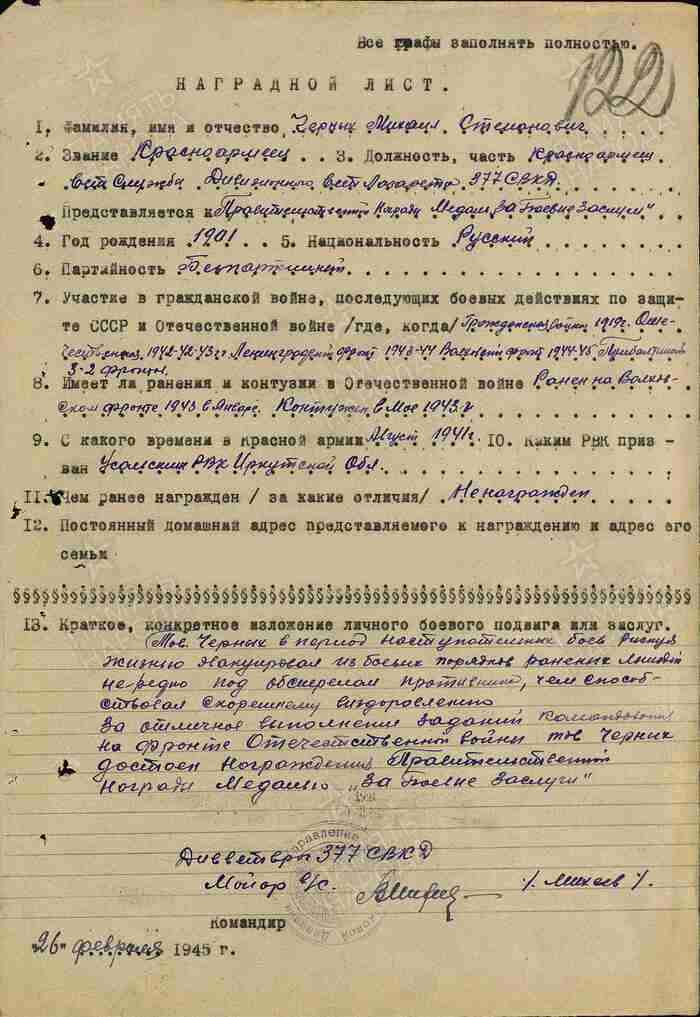 Все графы заполнять полностью.
122
НАГРАДНОЙ ЛИСТ.
1. Фамилия, имя и отчество Черных Михаил Стемонович.....
2. Звание Красноармеец .. 3. Должность, часть Красноармеец.
Вет Служба Дивизионного Вет Лазарета 377 СВКД.
Представляется к Правительственной Награде Медаль "За Боевые Заслуги"
4. Год рождения 1901... 5. Национальность Русский
6. Партийность Беспартийный
7. Участие в гражданской войне, последующих боевых действиях по защи-
те СССР и Отечественной войне /где, когда/ Гражданская война 1919г. Оте-
чественная 1942-43г Ленинградский фронт 1943-44 Волховский фронт 1944-45 Прибалтийский
3-2 фронты.
8. Имеет ли ранения и контузии в Отечественной войне Ранен на Волхов-
ском фронте 1943 в Январе. Контужен в Мае 1943 г
9. С какого времени в Красной армии Август 1941г. 10. Каким РВК приз -
ван Усольским РВК Иркутской Обл.
11. Чем ранее награжден / за какие отличия/ Не награжден
12. Постоянный домашний адрес представляемого к награждению и адрес его
семьи
§§§§§§§§§§§§§§§§§§§§§§§§§§§§§§§§§§§§§§§§§§§§§§§§§§§§§§§§§§§§
13. Краткое, конкретное изложение личного боевого подвига или заслуг.
Тов. Черных в период наступательных боев рискуя
жизнью эвакуировал из боевых порядков раненых лошадей
нередко под обстрелом противника, чем способ-
ствовал скорейшему выздоровлению
За отличное выполнение заданий командования
на фронте Отечественной войны тов Черных
достоен Награждения Правительственной
Награды Медалью "За Боевые Заслуги"
Дивветврач 377 СВКД
Майор в/с. /Михеев/.
Командир
"26" февраля 1945 г.